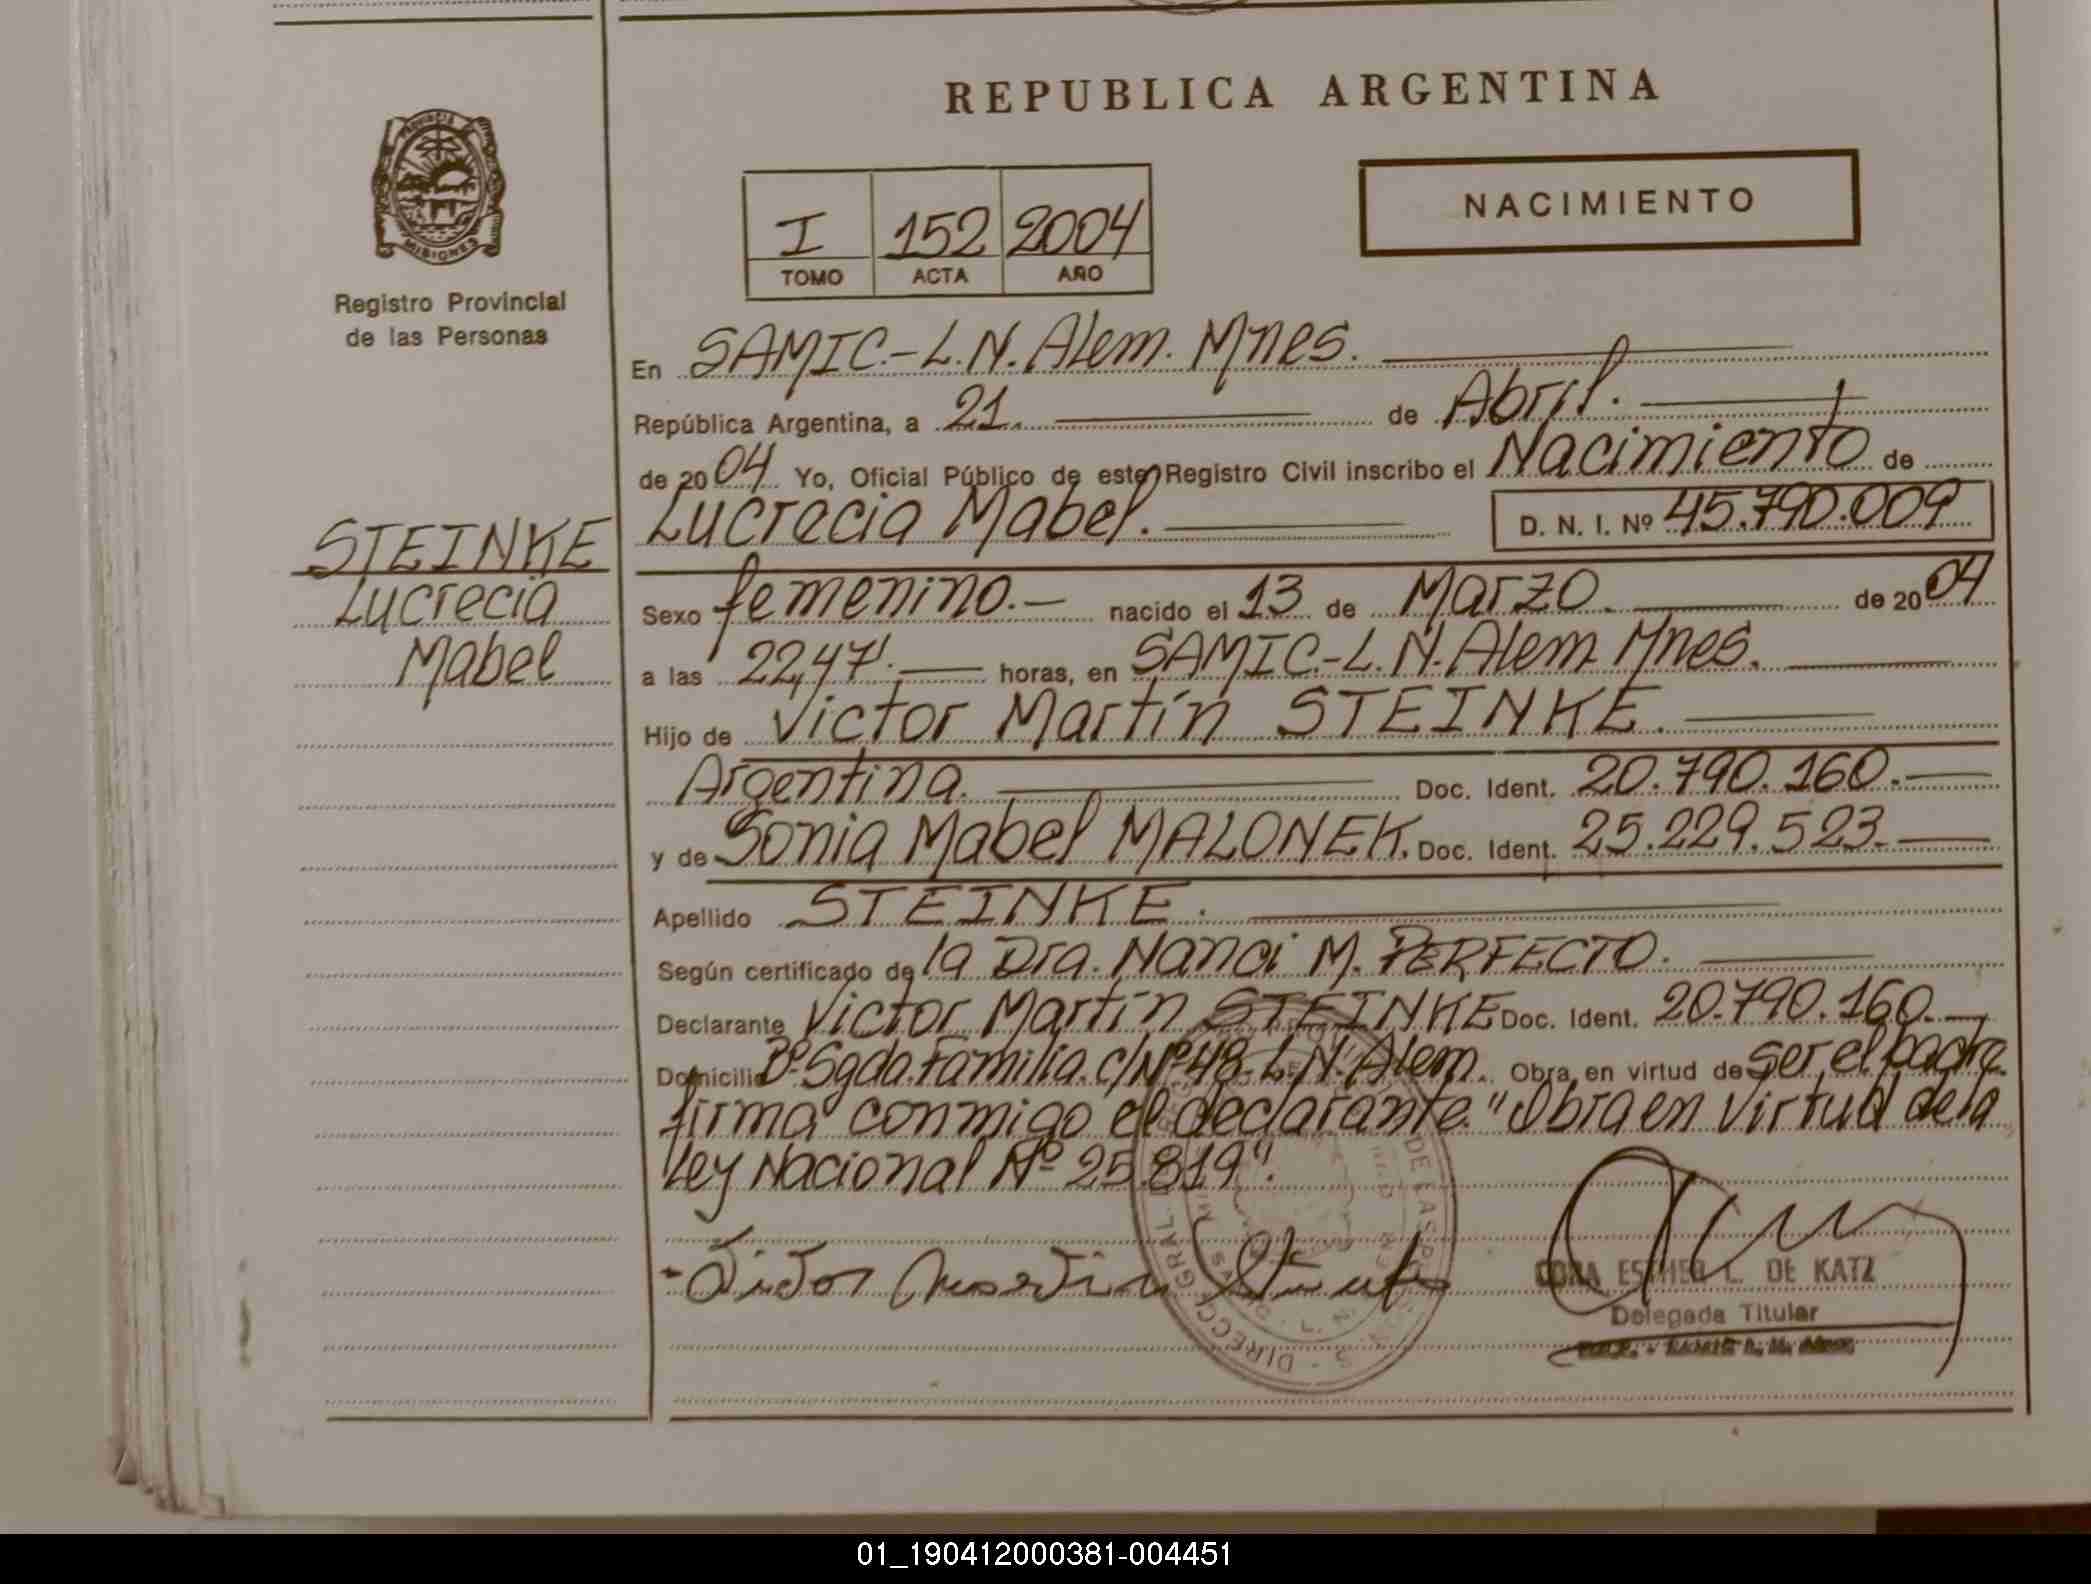 REPUBLICA ARGENTINA
PROVINCIA DE
MISIONES
Registro Provincial
de las Personas
NACIMIENTO
I 152 2004
TOMO ACTA AÑO
En SAMIC.-L.N.Alem. Mnes.
República Argentina, a 21. de Abril.
de 2004 Yo, Oficial Público de este Registro Civil inscribo el Nacimiento de
Lucrecia Mabel. D. N. I. Nº 45.790.009
STEINKE
Lucrecia
Mabel
Sexo femenino.- nacido el 13 de Marzo. de 2004
a las 22,47'. horas, en SAMIC.-L.N.Alem Mnes.
Hijo de Victor Martín STEINKE.
Argentina. Doc. Ident. 20.790.160.-
y de Sonia Mabel MALONEK. Doc. Ident. 25.229.523.-
Apellido STEINKE.
Según certificado de la Dra. Nanci M. PERFECTO.
Declarante Victor Martín STEINKE Doc. Ident. 20.790.160.-
Domicilio Bº Sgda. Familia. c/Nº 48-L.N.Alem. Obra en virtud de ser el padre
firma conmigo el declarante. "Obra en virtud de la
Ley Nacional Nº 25.819".
CORA ESTHER L. DE KATZ
Delegada Titular
01_190412000381-004451